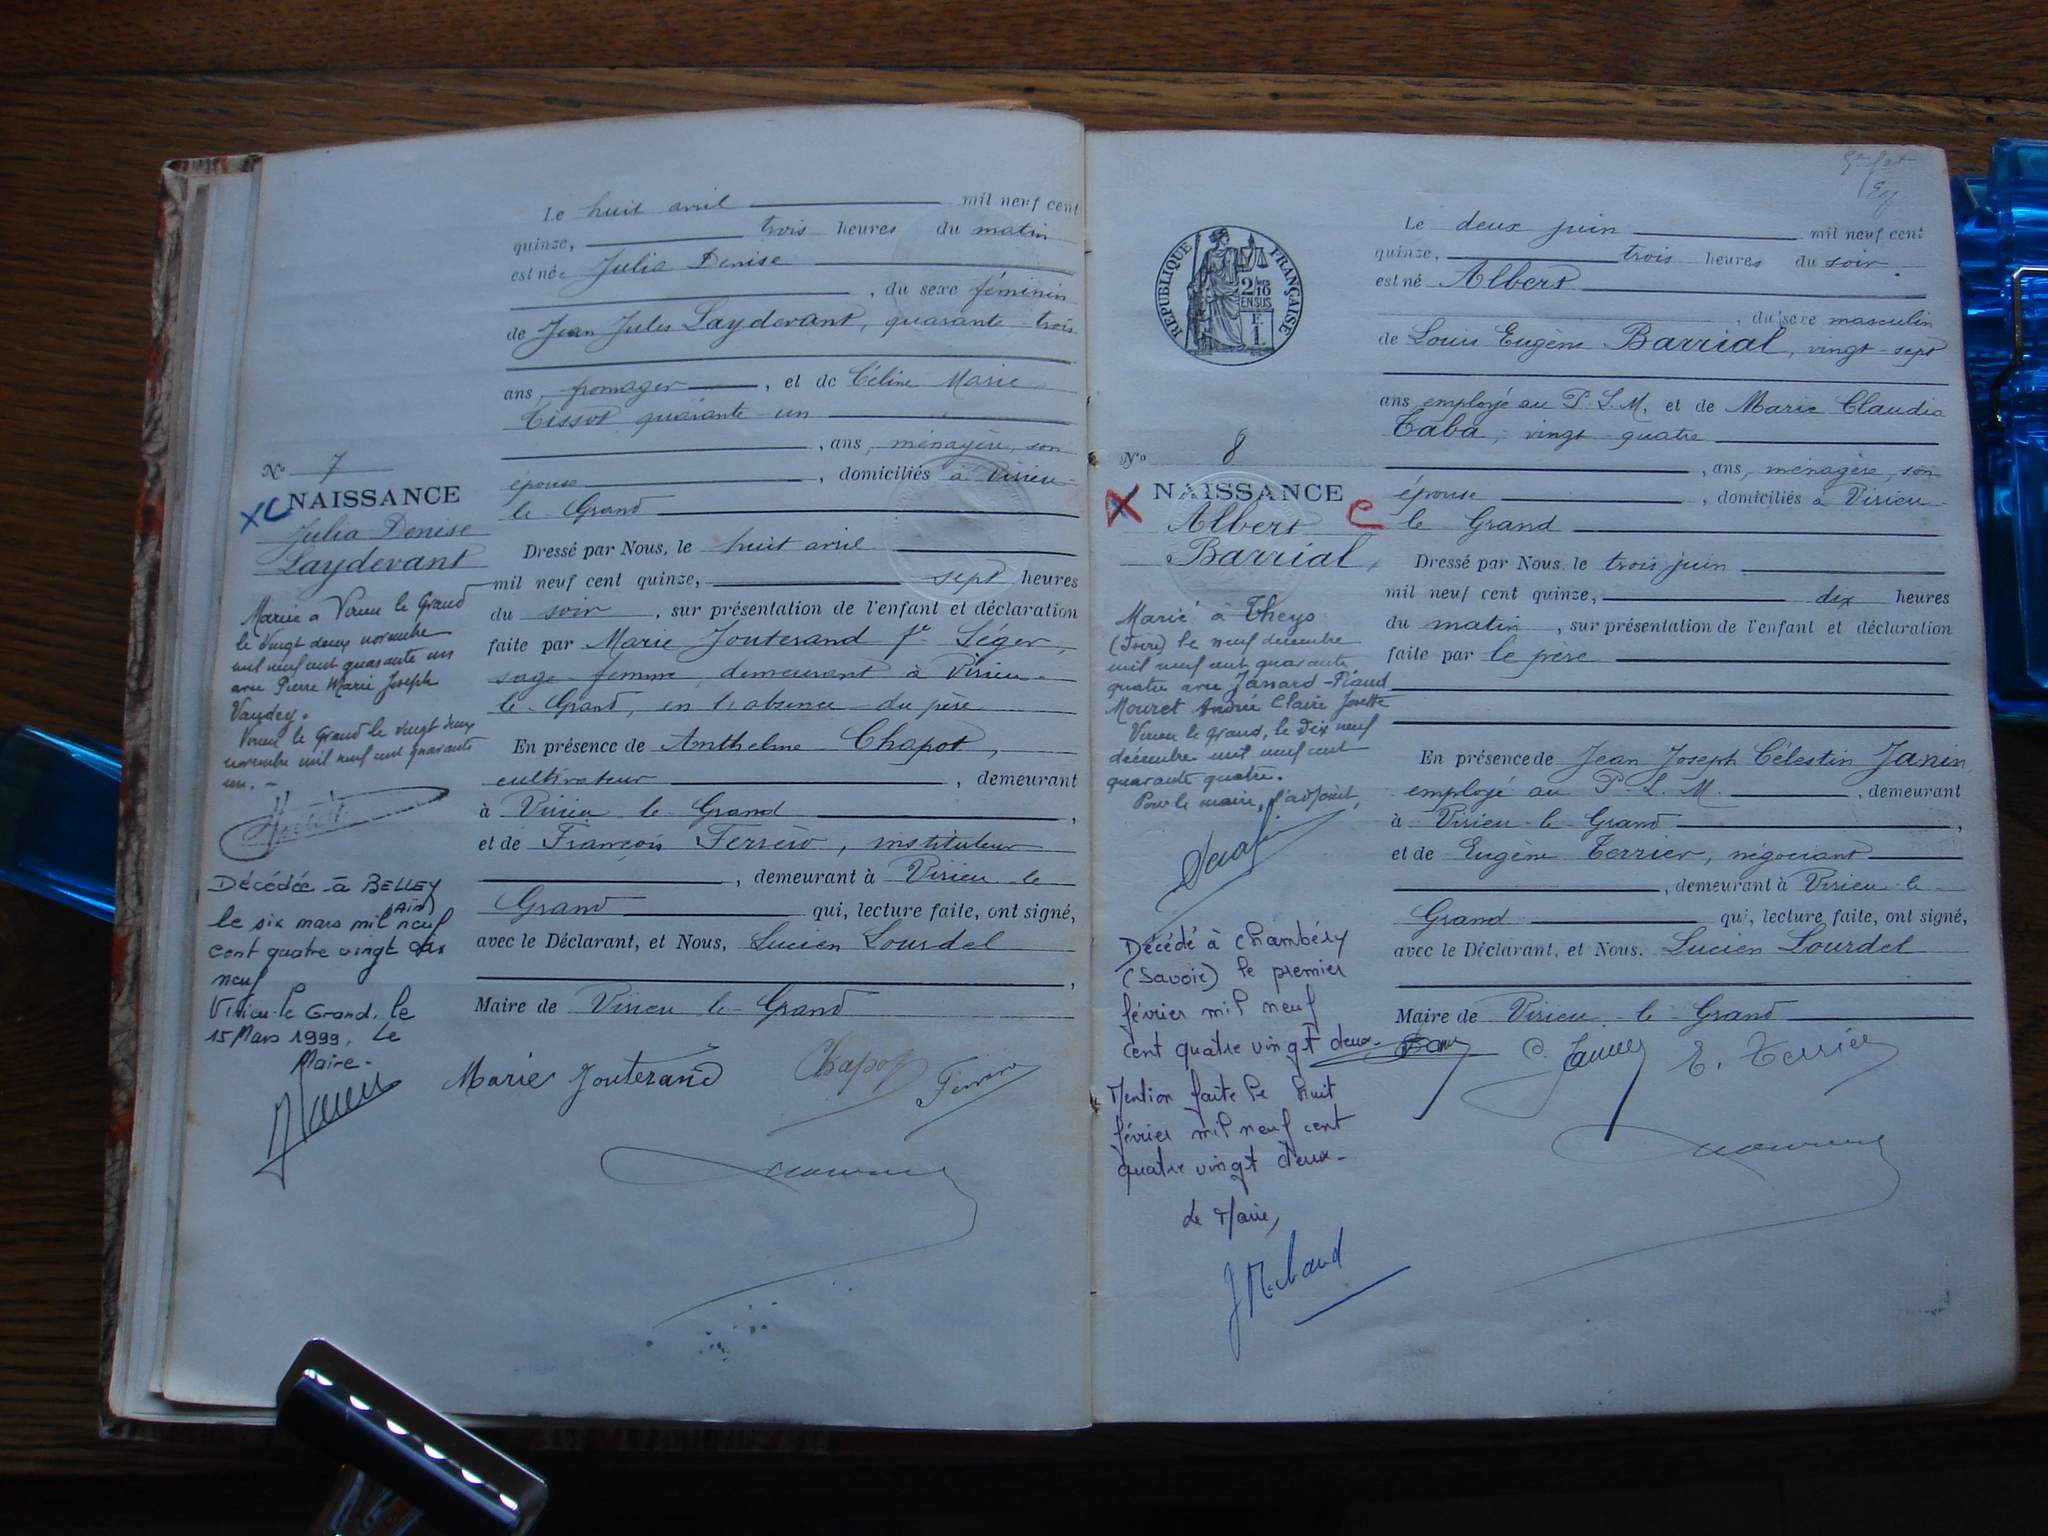 Le huit avril mil neuf cent
quinze, trois heures du matin
est née Julia Denise
, du sexe féminin
de Jean Jules Laydevant, quarante-trois
ans, fromager, et de Céline Marie
Tissot quarante un
, ans, ménagère, son
épouse, domiciliés à Virieu-
le Grand
Dressé par Nous, le huit avril
mil neuf cent quinze, sept heures
du soir, sur présentation de l'enfant et déclaration
faite par Marie Jouterand fe Léger,
sage-femme, demeurant à Virieu-
le-Grand, en l'absence du père
En présence de Anthelme Chapot,
cultivateur, demeurant
à Virieu le Grand,
et de François Ferrero, instituteur
, demeurant à Virieu le
Grand qui, lecture faite, ont signé,
avec le Déclarant, et Nous, Lucien Lourdel
,
Maire de Virieu le Grand
Marie Jouterand Chapot
No 7
NAISSANCE
XC
Julia Denise
Laydevant
Mariée à Virieu le Grand
le vingt deux novembre
mil neuf cent quarante un
avec Pierre Marie Joseph
Vaudey.
Virieu le Grand le vingt deux
novembre mil neuf cent quarante
un. -
Décédée à BELLEY
(Ain)
le six mars mil neuf
cent quatre vingt dix
neuf
Virieu-le Grand, le
15 Mars 1999, Le
Maire -
RÉPUBLIQUE FRANÇAISE
2/10
EN SUS
F.
1.
Le deux juin mil neuf cent
quinze, trois heures du soir.
est né Albert
, du sexe masculin
de Louis Eugène Barrial, vingt-sept
ans employé au P.L.M, et de Marie Claudia
Taba, vingt-quatre
, ans, ménagère, son
épouse, domiciliés à Virieu-
le Grand
Dressé par Nous, le trois juin
mil neuf cent quinze, dix heures
du matin, sur présentation de l'enfant et déclaration
faite par le père
En présence de Jean Joseph Célestin Janin,
employé au P.L.M., demeurant
à Virieu-le-Grand,
et de Eugène Terrier, négociant
, demeurant à Virieu-le-
Grand qui, lecture faite, ont signé,
avec le Déclarant, et Nous, Lucien Lourdel
Maire de Virieu-le-Grand
E. Terrier
No 8
NAISSANCE
X C
Albert
Barrial
Marié à Theys
(Isère) le neuf décembre
mil neuf cent quarante
quatre avec Janard-Piaud
Mouret Andrée Claire Josette
Virieu le Grand, le dix neuf
décembre mil neuf cent
quarante quatre.
Pour le maire, l'adjoint,
Décédé à Chambéry
(Savoie) le premier
février mil neuf
cent quatre vingt deux-
Mention faite le huit
février mil neuf cent
quatre vingt deux-
Le Maire,